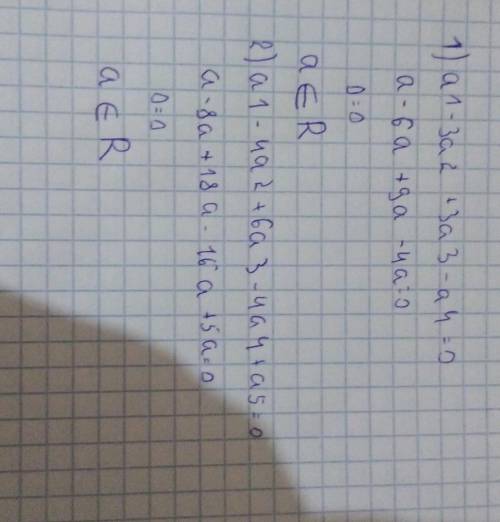 1) a1 - 3a2 + 3a3 - a4 = 0
a - 6a + 9a - 4a = 0
0 = 0
a ∈ R
2) a1 - 4a2 + 6a3 - 4a4 + a5 = 0
a - 8a + 18a - 16a + 5a = 0
0 = 0
a ∈ R